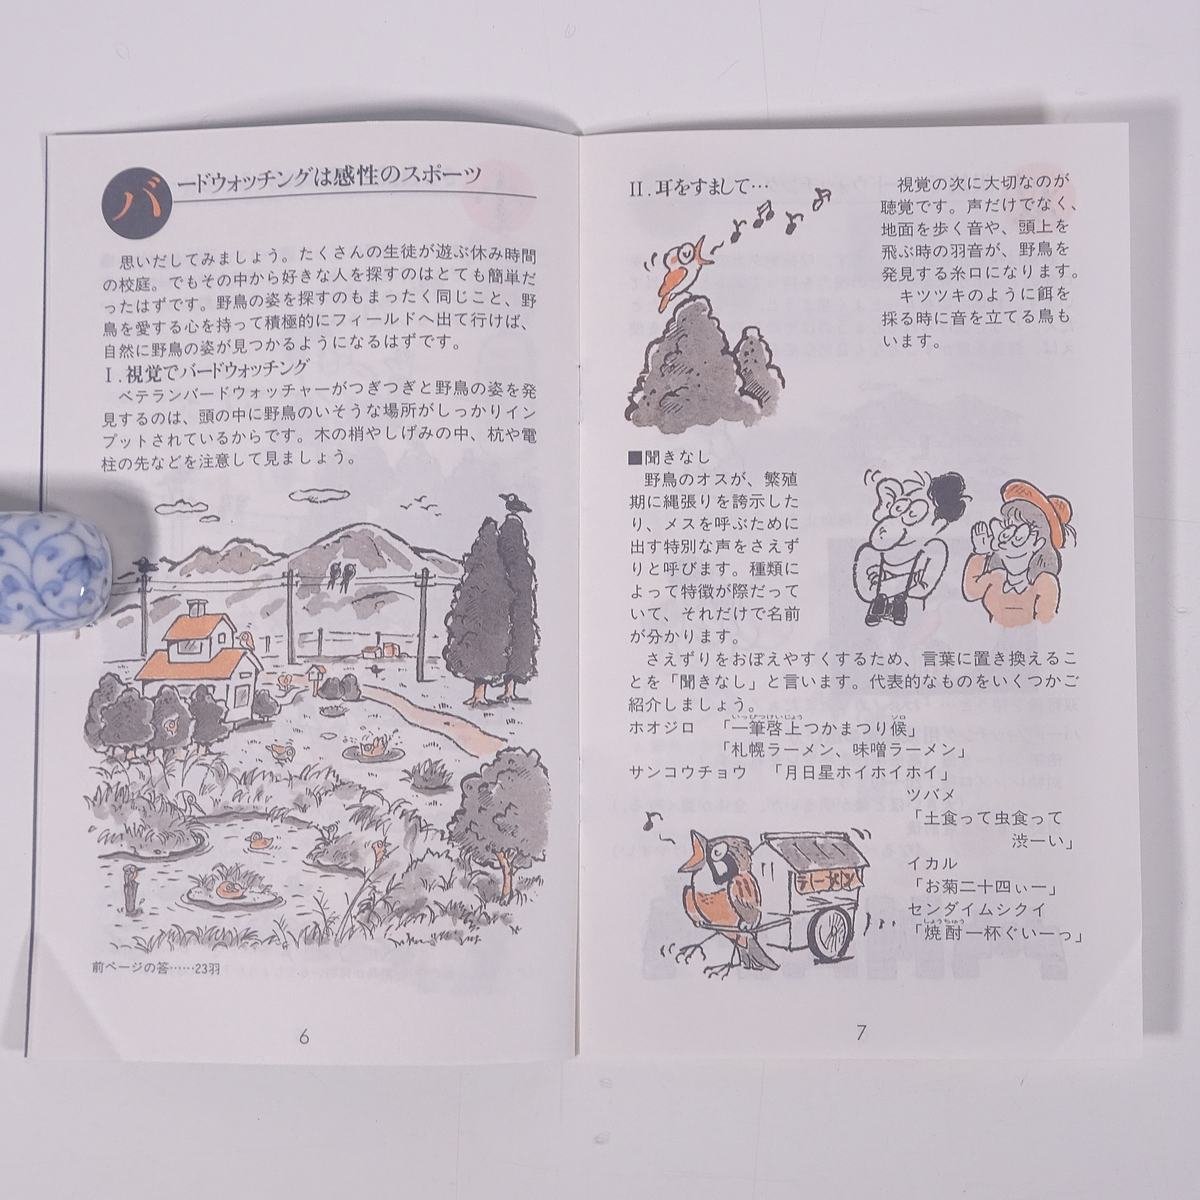 バードウォッチングは感性のスポーツ
思いだしてみましょう。たくさんの生徒が遊ぶ休み時間
の校庭。でもその中から好きな人を探すのはとても簡単だ
ったはずです。野鳥の姿を探すのもまったく同じこと、野
鳥を愛する心を持って積極的にフィールドへ出て行けば、
自然に野鳥の姿が見つかるようになるはずです。
I.視覚でバードウォッチング
ベテランバードウォッチャーがつぎつぎと野鳥の姿を発
見するのは、頭の中に野鳥のいそうな場所がしっかりイン
プットされているからです。木の梢やしげみの中、杭や電
柱の先などを注意して見ましょう。
前ページの答……23羽
6
II.耳をすまして…
視覚の次に大切なのが
聴覚です。声だけでなく、
地面を歩く音や、頭上を
飛ぶ時の羽音が、野鳥を
発見する糸口になります。
キツツキのように餌を
採る時に音を立てる鳥も
います。
■聞きなし
野鳥のオスが、繁殖
期に縄張りを誇示した
り、メスを呼ぶために
出す特別な声をさえず
りと呼びます。種類に
よって特徴が際だって
いて、それだけで名前
が分かります。
さえずりをおぼえやすくするため、言葉に置き換えるこ
とを「聞きなし」と言います。代表的なものをいくつかご
紹介しましょう。
いっぴつけいじょう ソロ
ホオジロ 「一筆啓上つかまつり候」
「札幌ラーメン、味噌ラーメン」
サンコウチョウ 「月日星ホイホイホイ」
ツバメ
「土食って虫食って
渋ーい」
イカル
「お菊二十四ぃー」
センダイムシクイ
しょうちゅう
「焼酎一杯ぐいーっ」
ラーメン
7